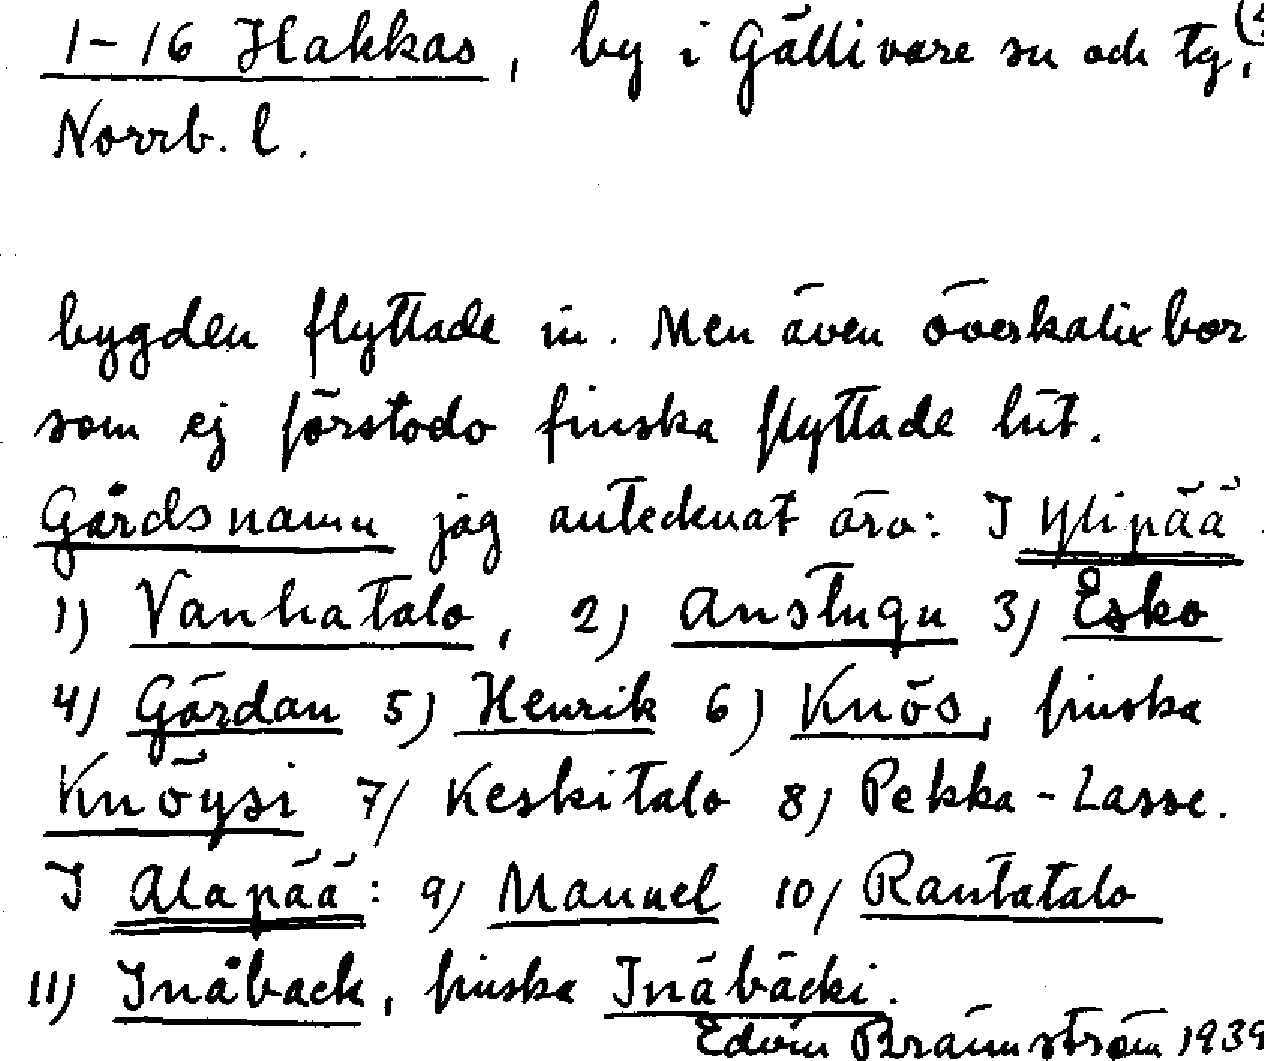 1-16 Hakkas, by i Gällivare sn och tg,
Norrb. l.
bygden flyttade in. Men även överkalixbor
som ej förstodo finska flyttade hit.
Gårdsnamn jag antecknat äro: I Ylipää
1) Vanhatalo, 2) Anstugu 3) Esko
4) Gärdan 5) Henrik 6) Knös, finska
Knöysi 7) Keskitalo 8) Pekka-Lasse.
I Alapää: 9) Manuel 10) Rantatalo
11) Inåback, finska Inäbäcki.
Edvin Brännström 1939